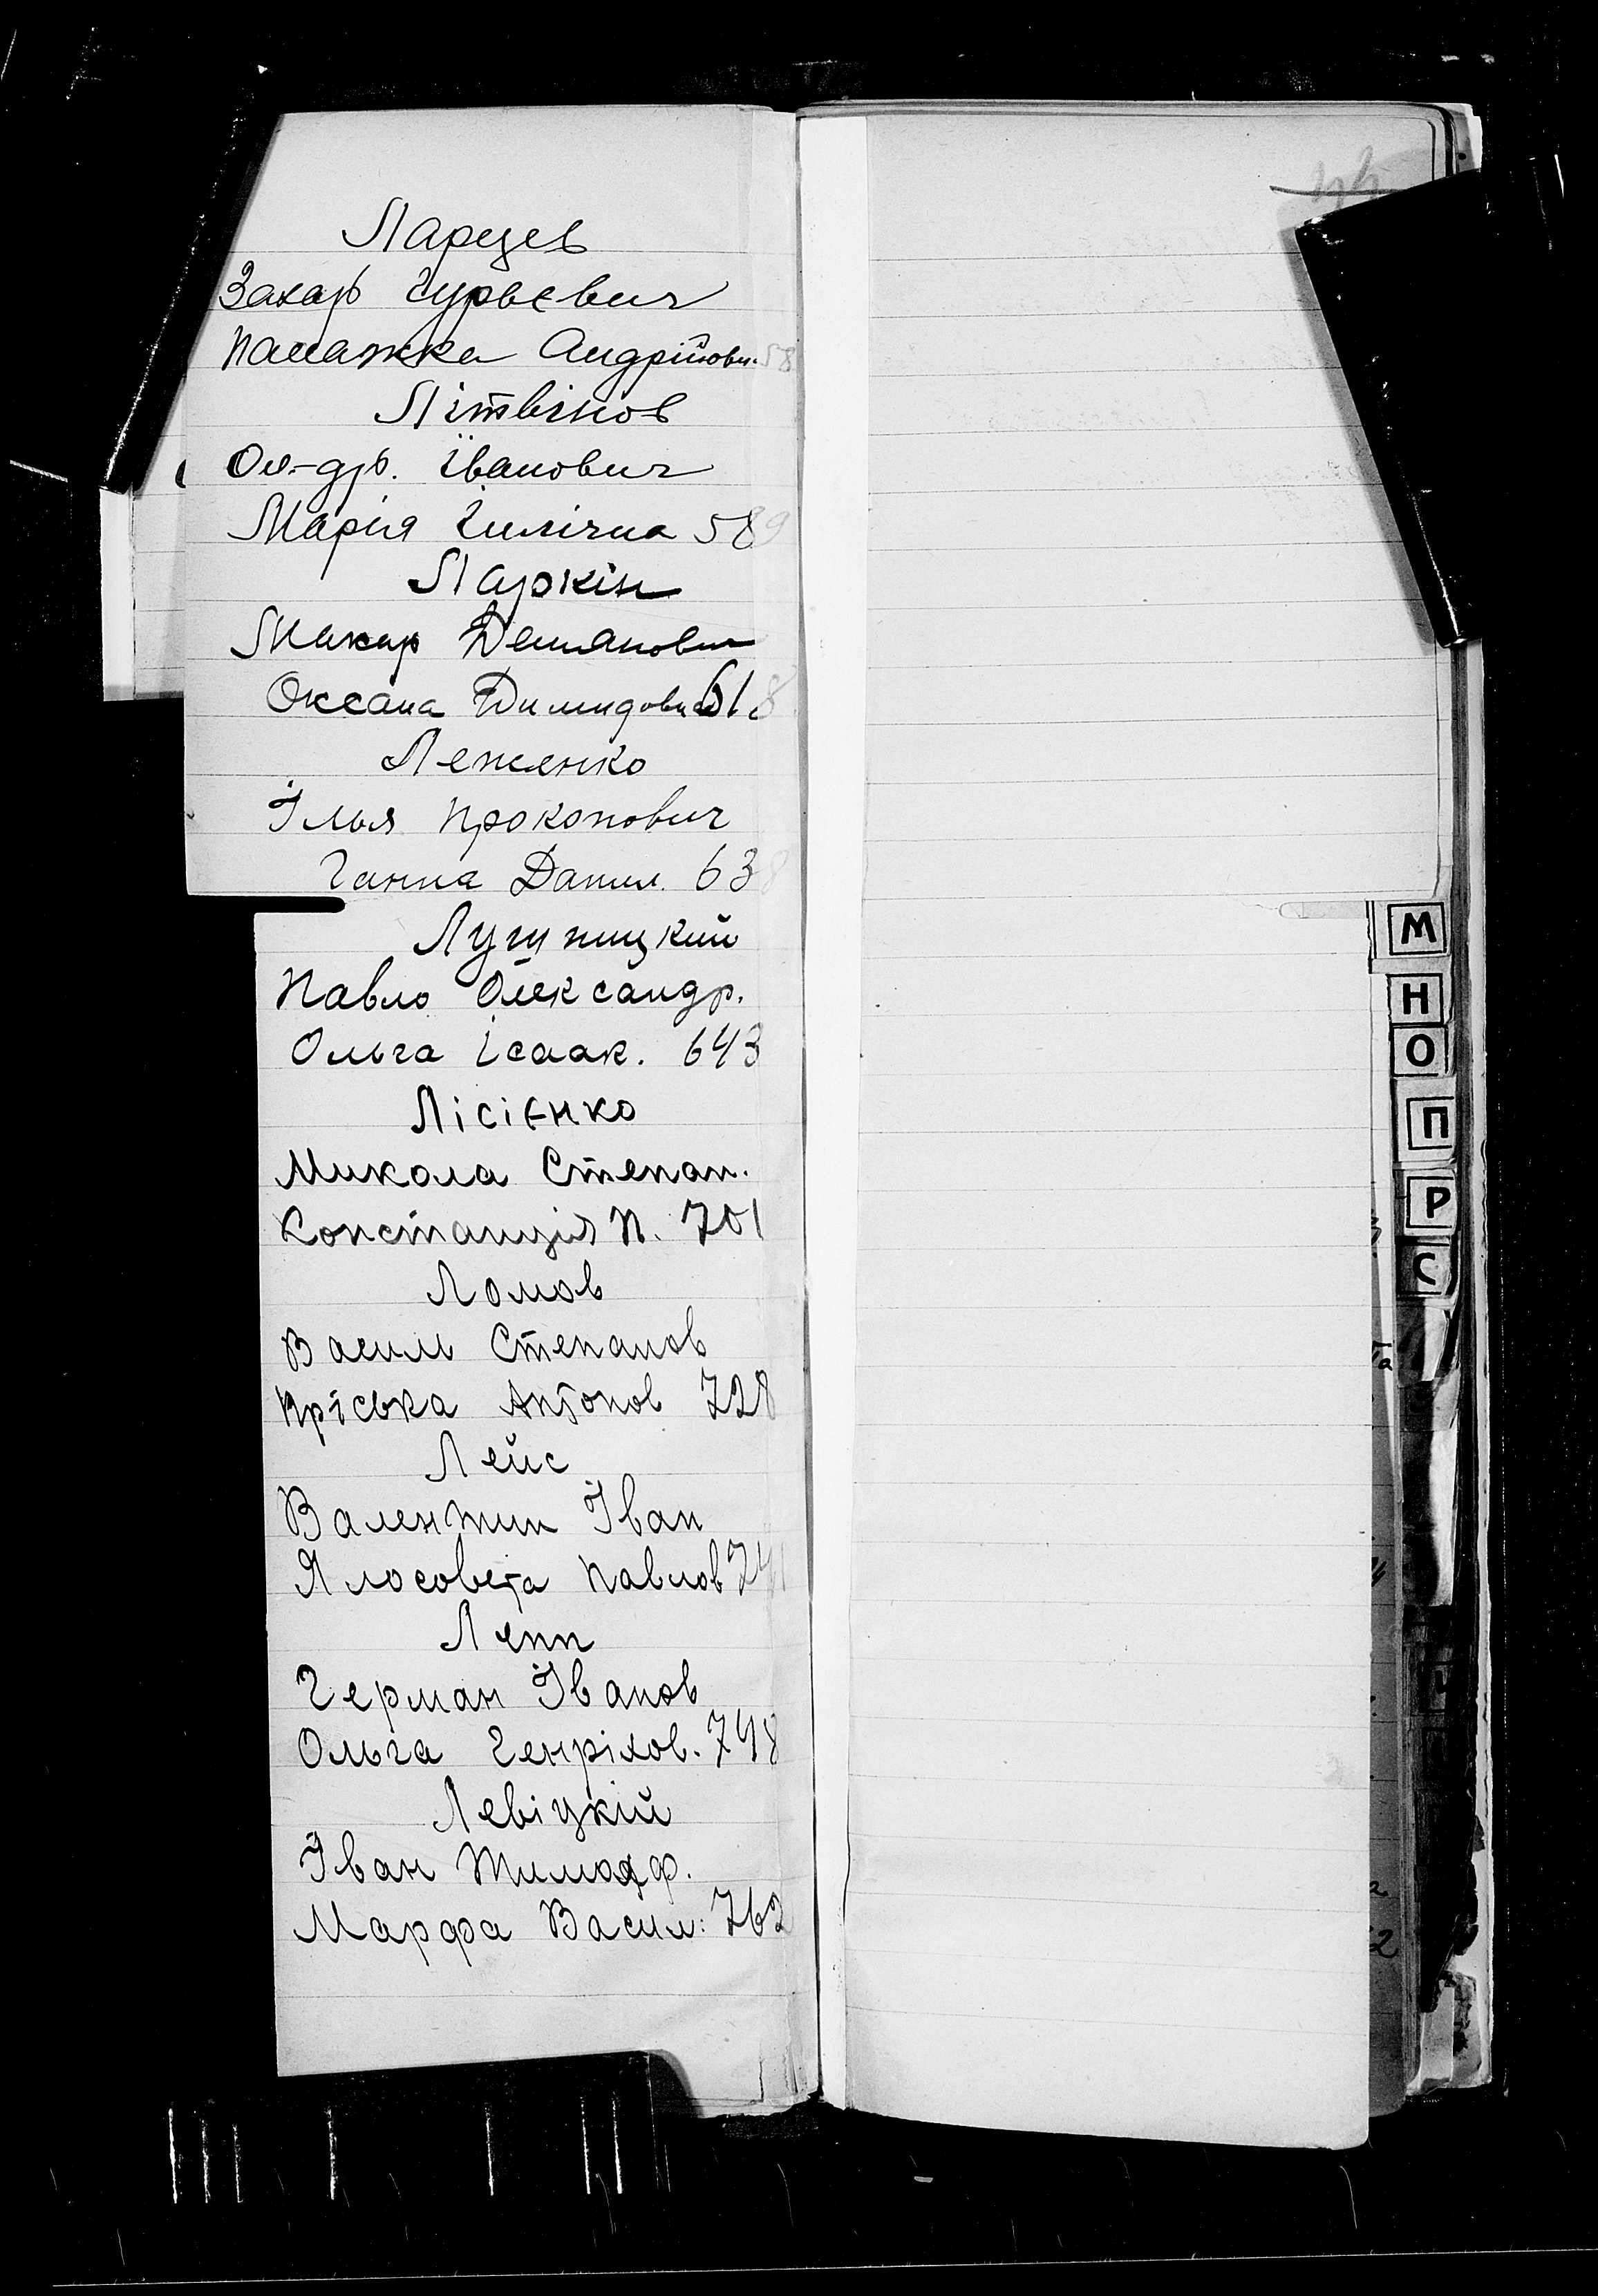 Ларцев
Захар Гурьєвич
Палажка Андріївн. 58
Літвінов
Ол-др. Іванович
Марія Іллічна 589
Ларкін
Макар Демянович
Оксана Димидовн 618
Леженко
Ілья Прокопович
Ганна Данил. 638
Лушпицкий
Павло Олександр.
Ольга Ісаак. 643
Лісієнко
Микола Степан.
Констанція П. 701
Ломов
Василь Степанов
Пріська Антонов 728
Лейс
Валентин Іван
Ялосовета Павлов 741
Лепп
Герман Іванов
Ольга Генріхов. 748
Левіцкій
Іван Тимофф.
Марфа Васил: 762
М
Н
О
П
Р
С